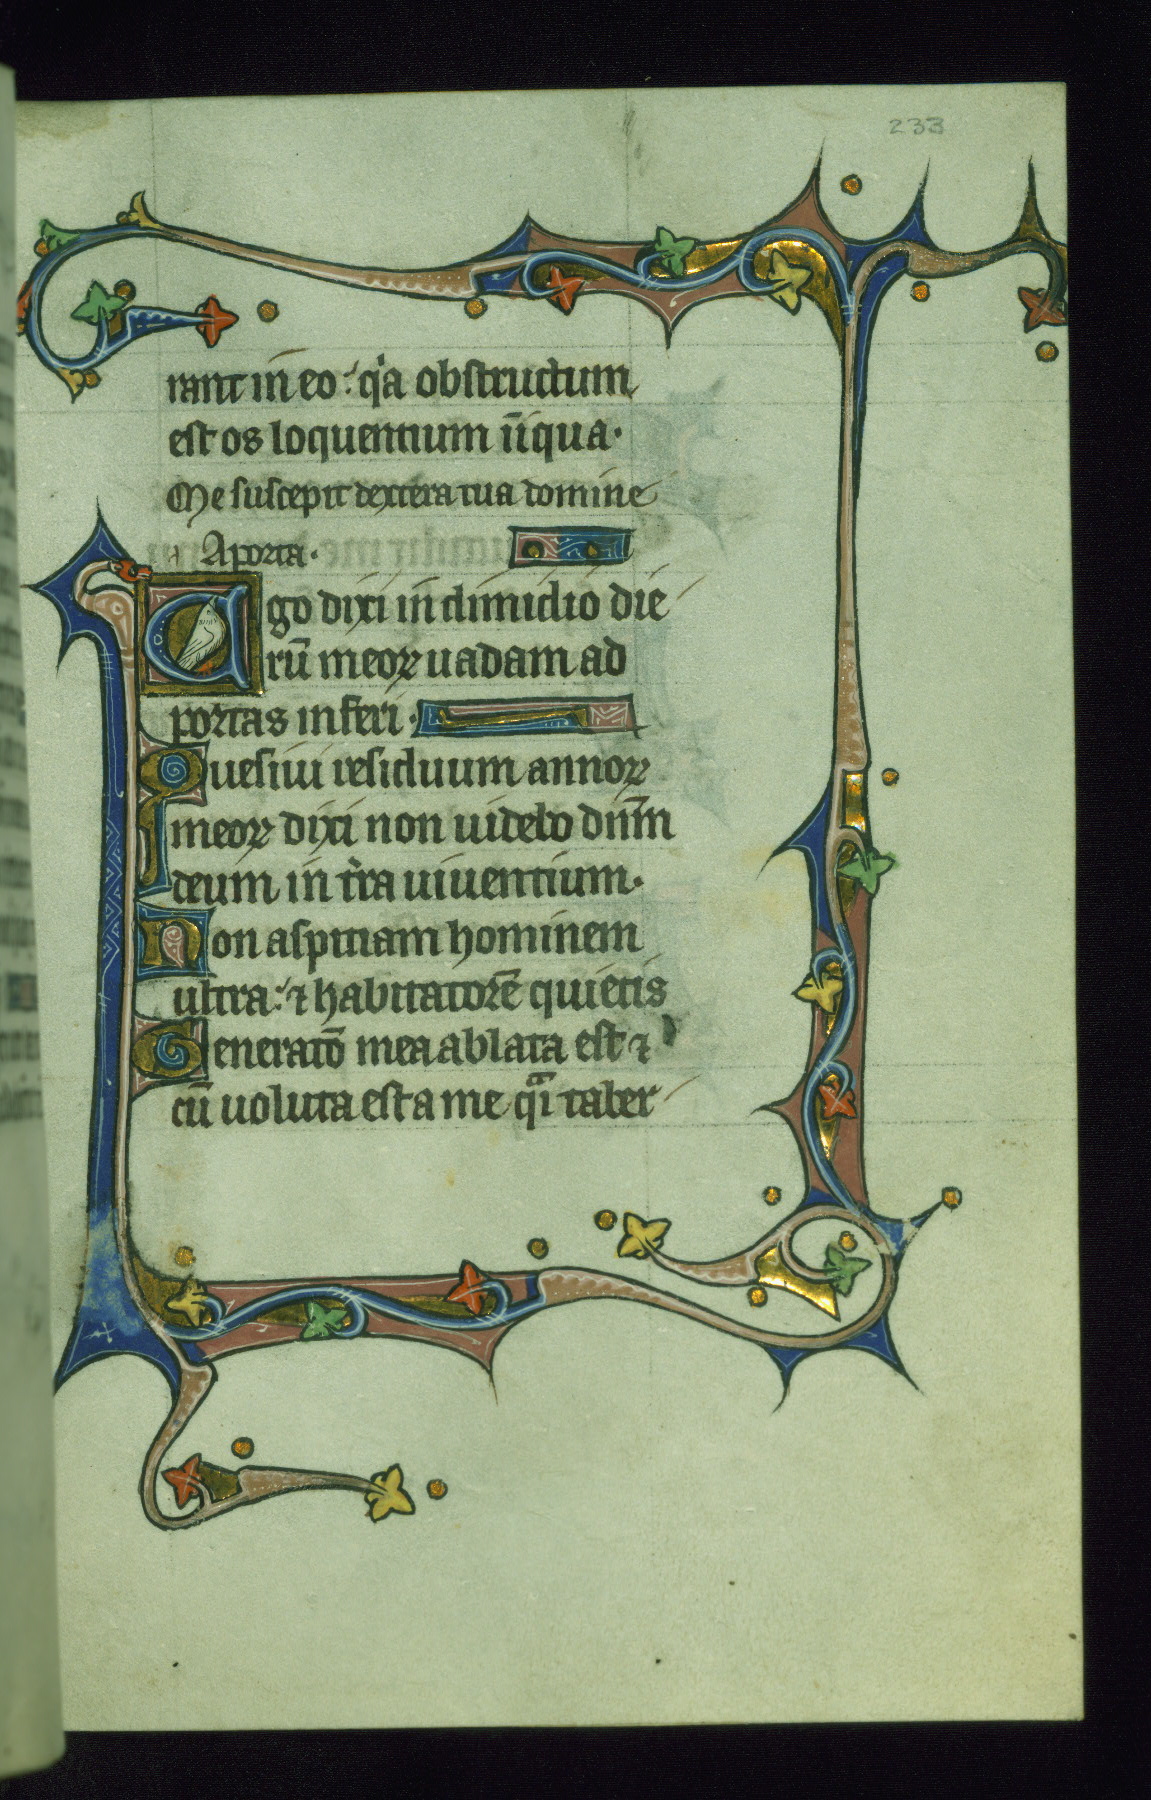 233
rant in eo : q̇a obstructum
est os loquentium iīqua·
Me suscepit dextera tua domine
A porta·
Ego dixi in dimidio die
rū meoꝝ uadam ad
portas inferi·
Quesiui residuum annoꝝ
meoꝝ dixi non uidebo dn̄m
deum in t̉ra uiuentium·
Non aspitiam hominem
ultra : ⁊ habitatorē quietis
Generatō mea ablata est ⁊
cū uoluta est a me qͣi taber